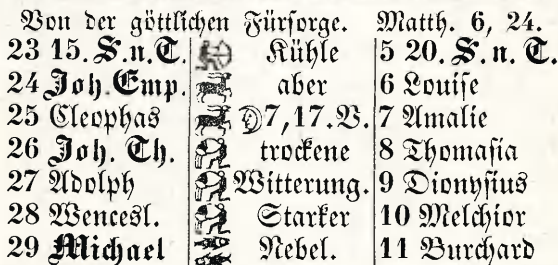 Von der göttlichen Fürsorge. Matth. 6, 24.
23 15. S. n. T. Kühle 5 20. S. n. T.
24 Joh. Emp. aber 6 Louise
25 Cleophas 7,17. V. 7 Amalie
26 Joh. Th. trockene 8 Thomasia
27 Adolph Witterung. 9 Dionysius
28 Wencesl. Starker 10 Melchior
29 Michael Nebel. 11 Burchard